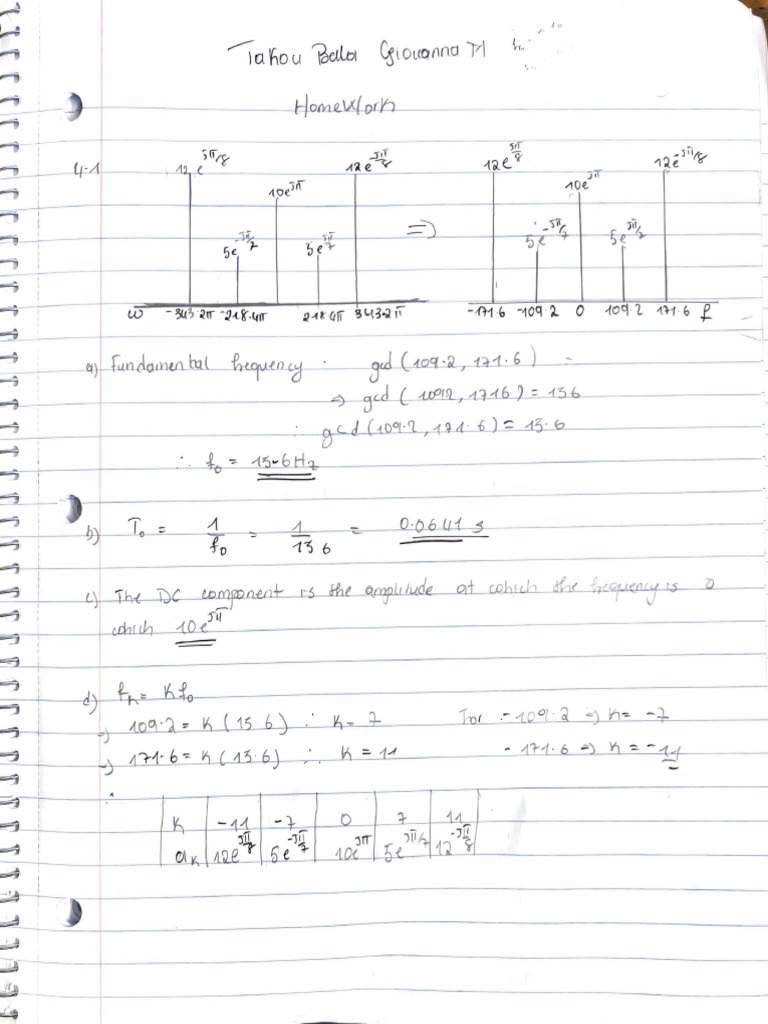 Takou Bala Giovanna M
Homework
4.1
12e^jπ/8 10e^jπ 12e^-jπ/8 12e^jπ/8 10e^jπ 12e^-jπ/8
5e^-jπ/7 5e^jπ/7 => 5e^-jπ/7 5e^jπ/7
ω -343.2π -218.4π 218.4π 343.2π -171.6 -109.2 0 109.2 171.6 f
a) Fundamental frequency . gcd (109.2, 171.6) =
=> gcd (1092, 1716) = 156
∴ gcd (109.2, 171.6) = 15.6
∴ f₀ = 15.6Hz
b) T₀ = 1/f₀ = 1/15.6 = 0.0641 s
c) The DC component is the amplitude at which the frequency is 0
which 10e^jπ
d) fₖ = Kf₀
→ 109.2 = K (15.6) ∴ K = 7 For -109.2 => K = -7
→ 171.6 = K (15.6) ∴ K = 11 -171.6 => K = -11
∴
K -11 -7 0 7 11
aₖ 12e^jπ/8 5e^-jπ/7 10e^jπ 5e^jπ/7 12^-jπ/8